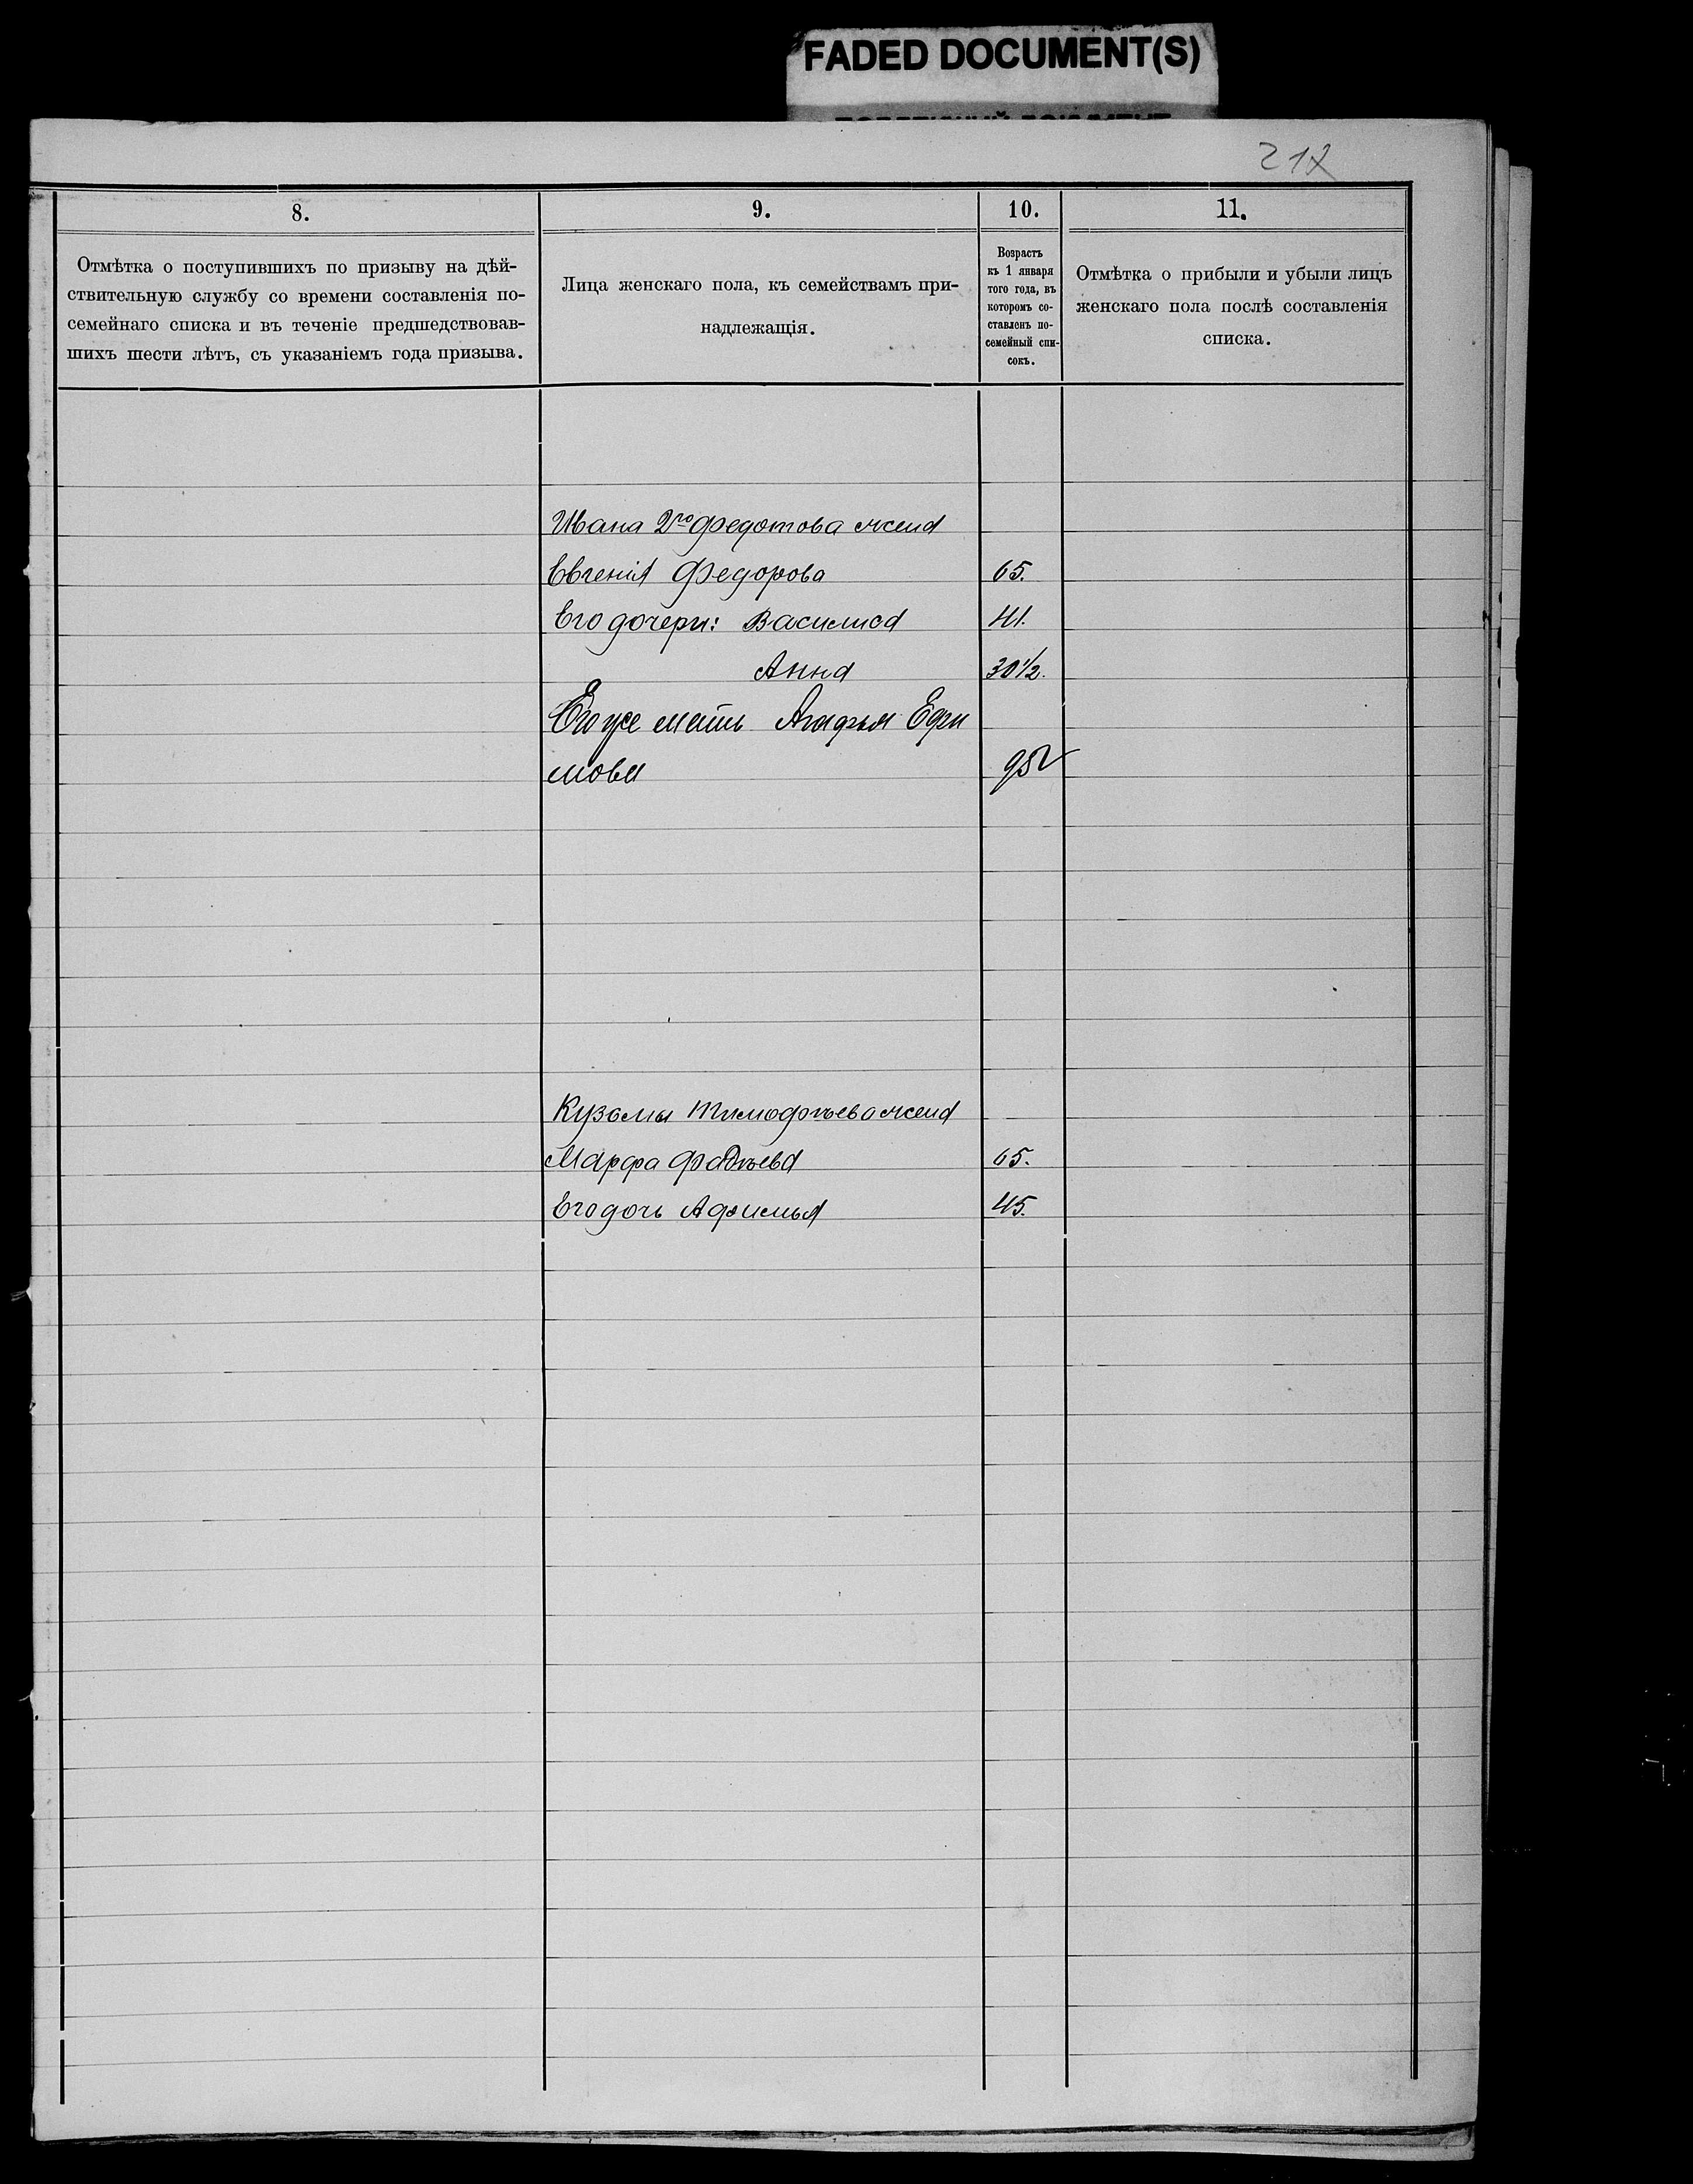 FADED DOCUMENT(S)
217
8.
9.
10.
11.
Отмѣтка о поступившихъ по призыву на дѣй-
ствительную службу со времени составленія по-
семейнаго списка и въ теченіе предшедствовав-
шихъ шести лѣтъ, съ указаніемъ года призыва.
Лица женскаго пола, къ семействамъ при-
надлежащія.
Возрастъ
къ 1 января
того года, въ
которомъ со-
ставленъ по-
семейный спи-
сокъ.
Отмѣтка о прибыли и убыли лицъ
женскаго пола послѣ составленія
списка.
Ивана 2го Федотова жена
Евгенія Федорова 65.
Его дочери: Василиса 41.
Анна 30½.
Его же мать Агафья Ефи
мова 95
Кузьмы Тимофѣева жена
Марфа Фадѣева 65.
Его дочь Афимья 45.